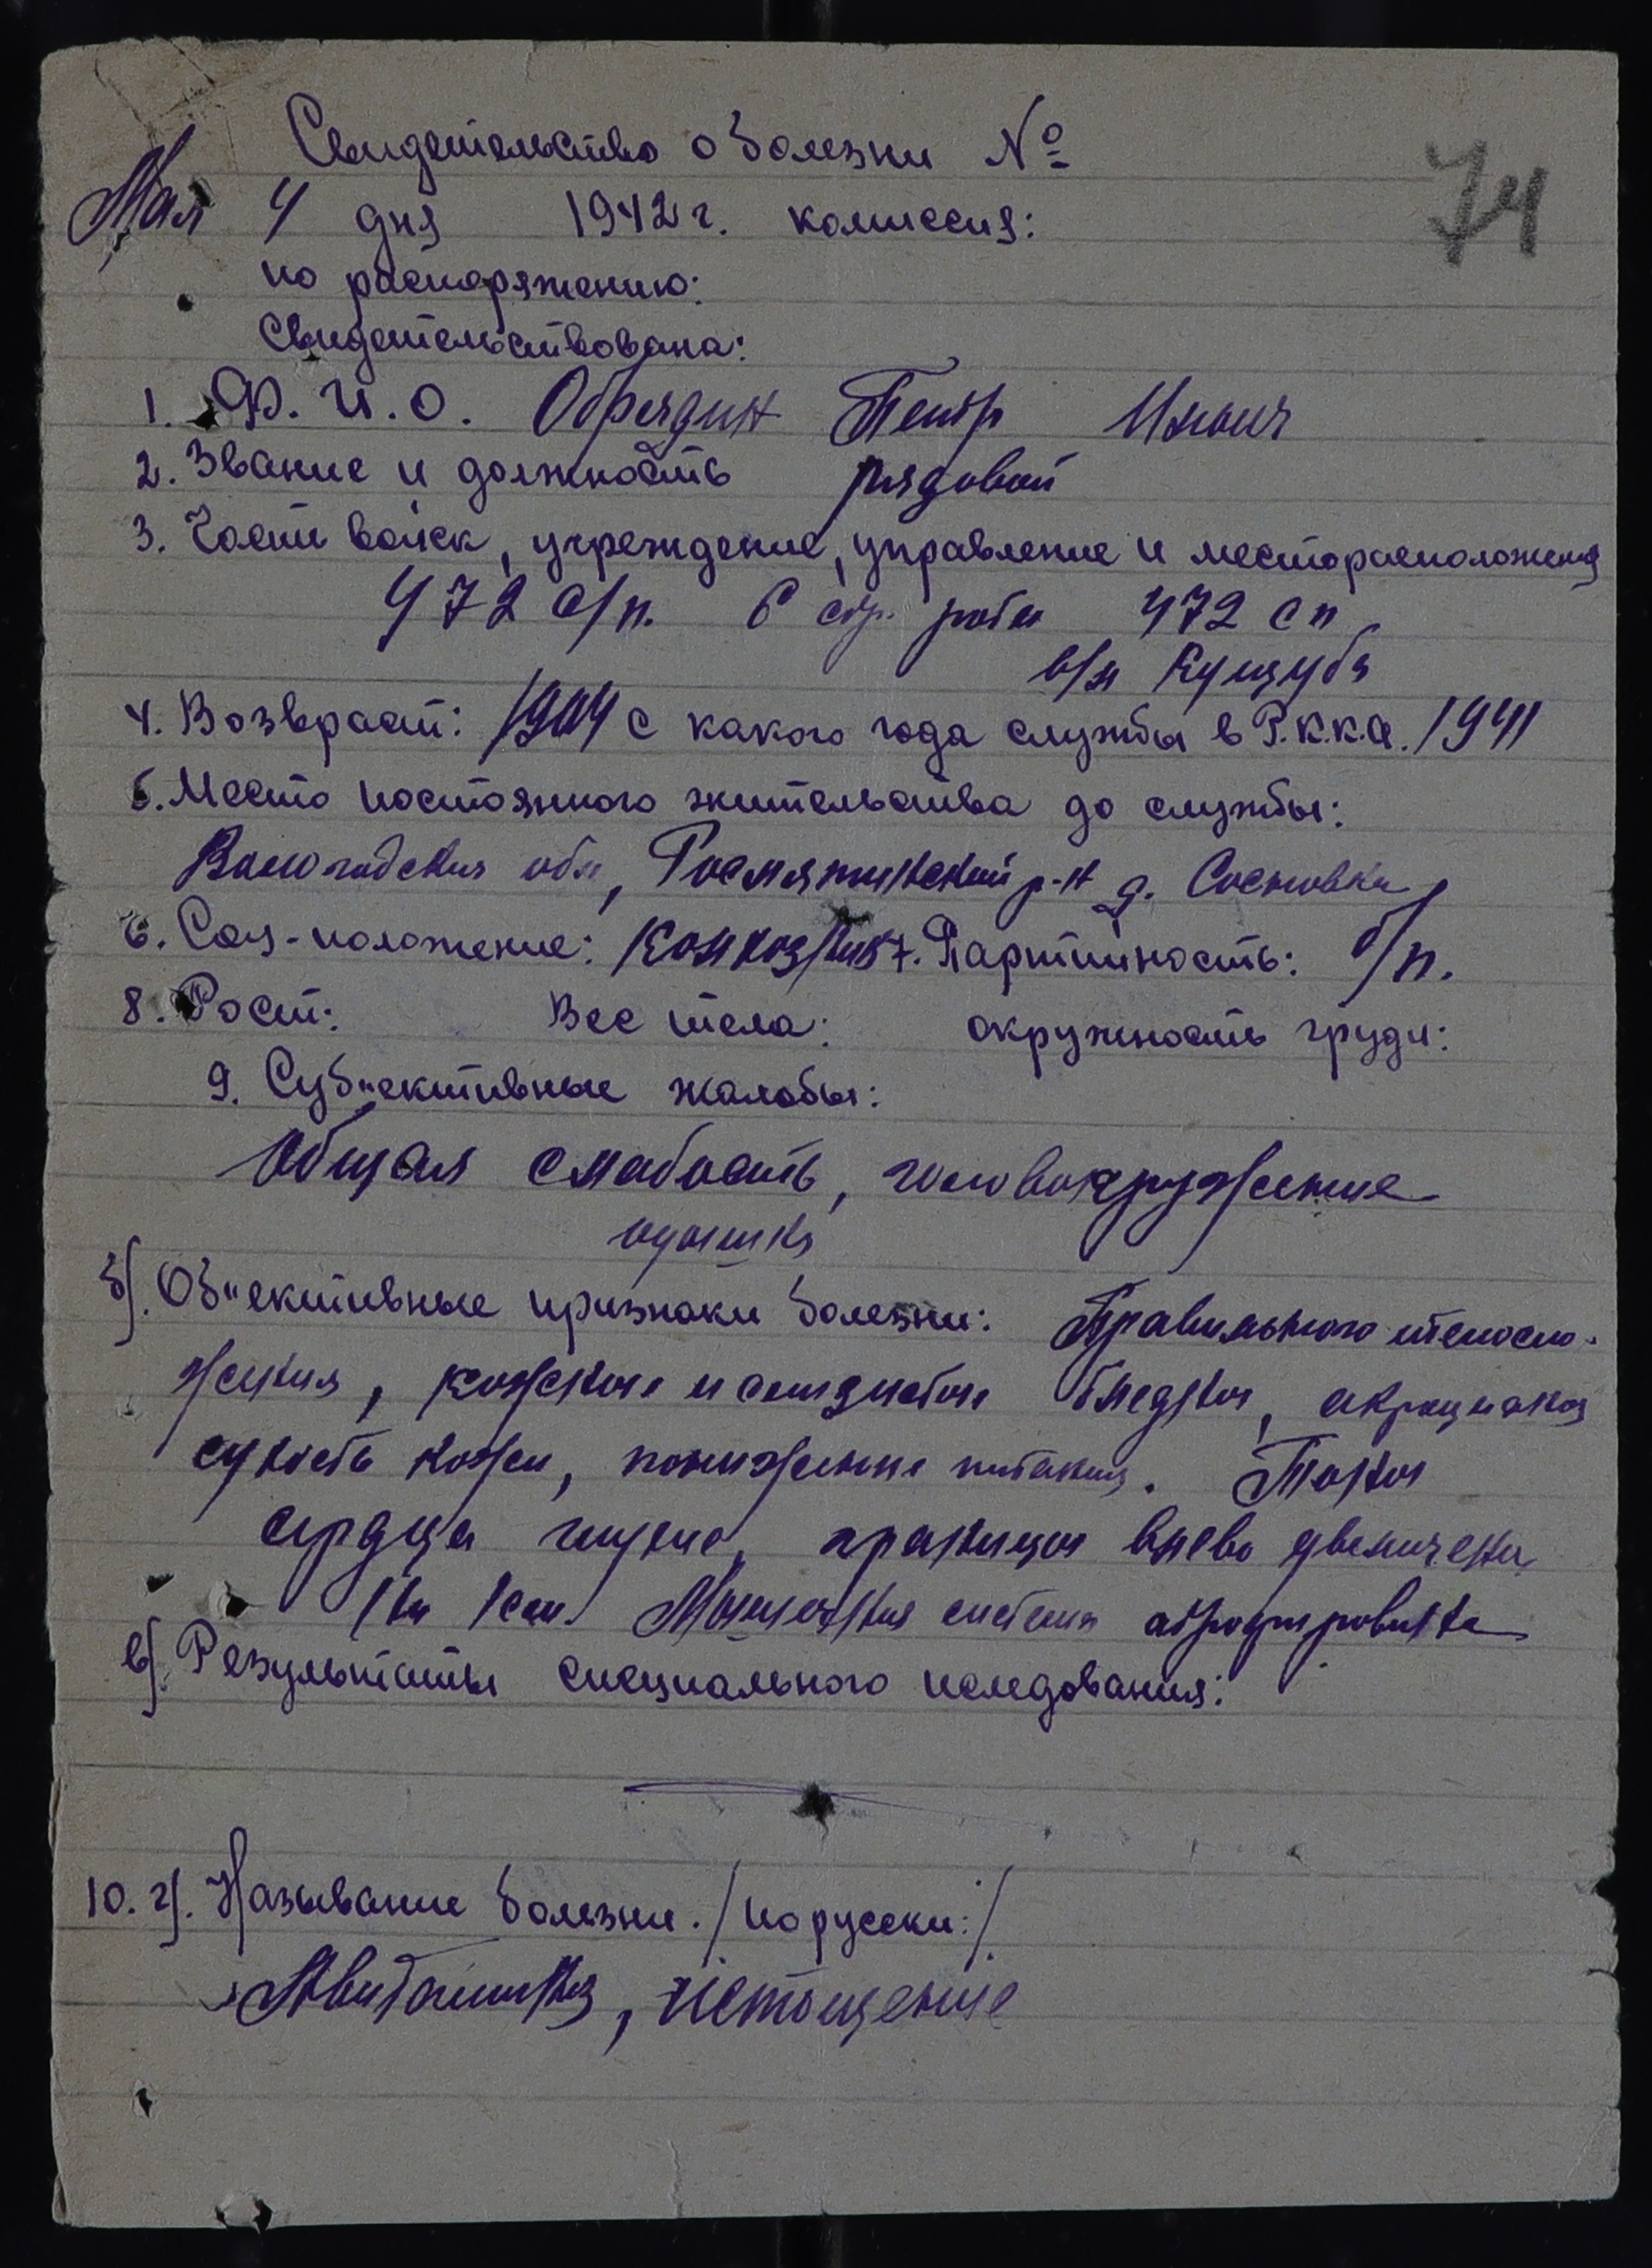 Свидетельство о болезни №
74
Мая 4 дня 1942 г. комиссия:
по распоряжению:
Свидетельствована:
1. Ф. И. О. Обрядин Петр Ильич
2. Звание и должность рядовой
3. Части войск, учреждение, управление и месторасположения
472 с/п. 6 стр. роты 472 сп
в/ч Кущуба
4. Возвраст: 1904 с какого года службы в Р.К.К.А. 1941
5. Место постоянного жительства до службы:
Вологодская обл, Рослятинский р-н д. Сосновка
6. Соц-положение: Колхозник 7. Партийность: б/п.
8. Рост: Вес тела: окружность груди:
9. Суб"ективные жалобы:
Общая слабость, головокружение
одышка
б). Об"ективные признаки болезни: Правильного телосло-
жения, кожные и слизистые бледны,
сухость кожи, понижение питания. Тоны
сердца глухие, границы влево увеличены
на 1 см. Мышечная система атрофирована
в). Результаты специального иследования:
10. г). Называние болезни. /по русски:/
Авитаминоз, истощение